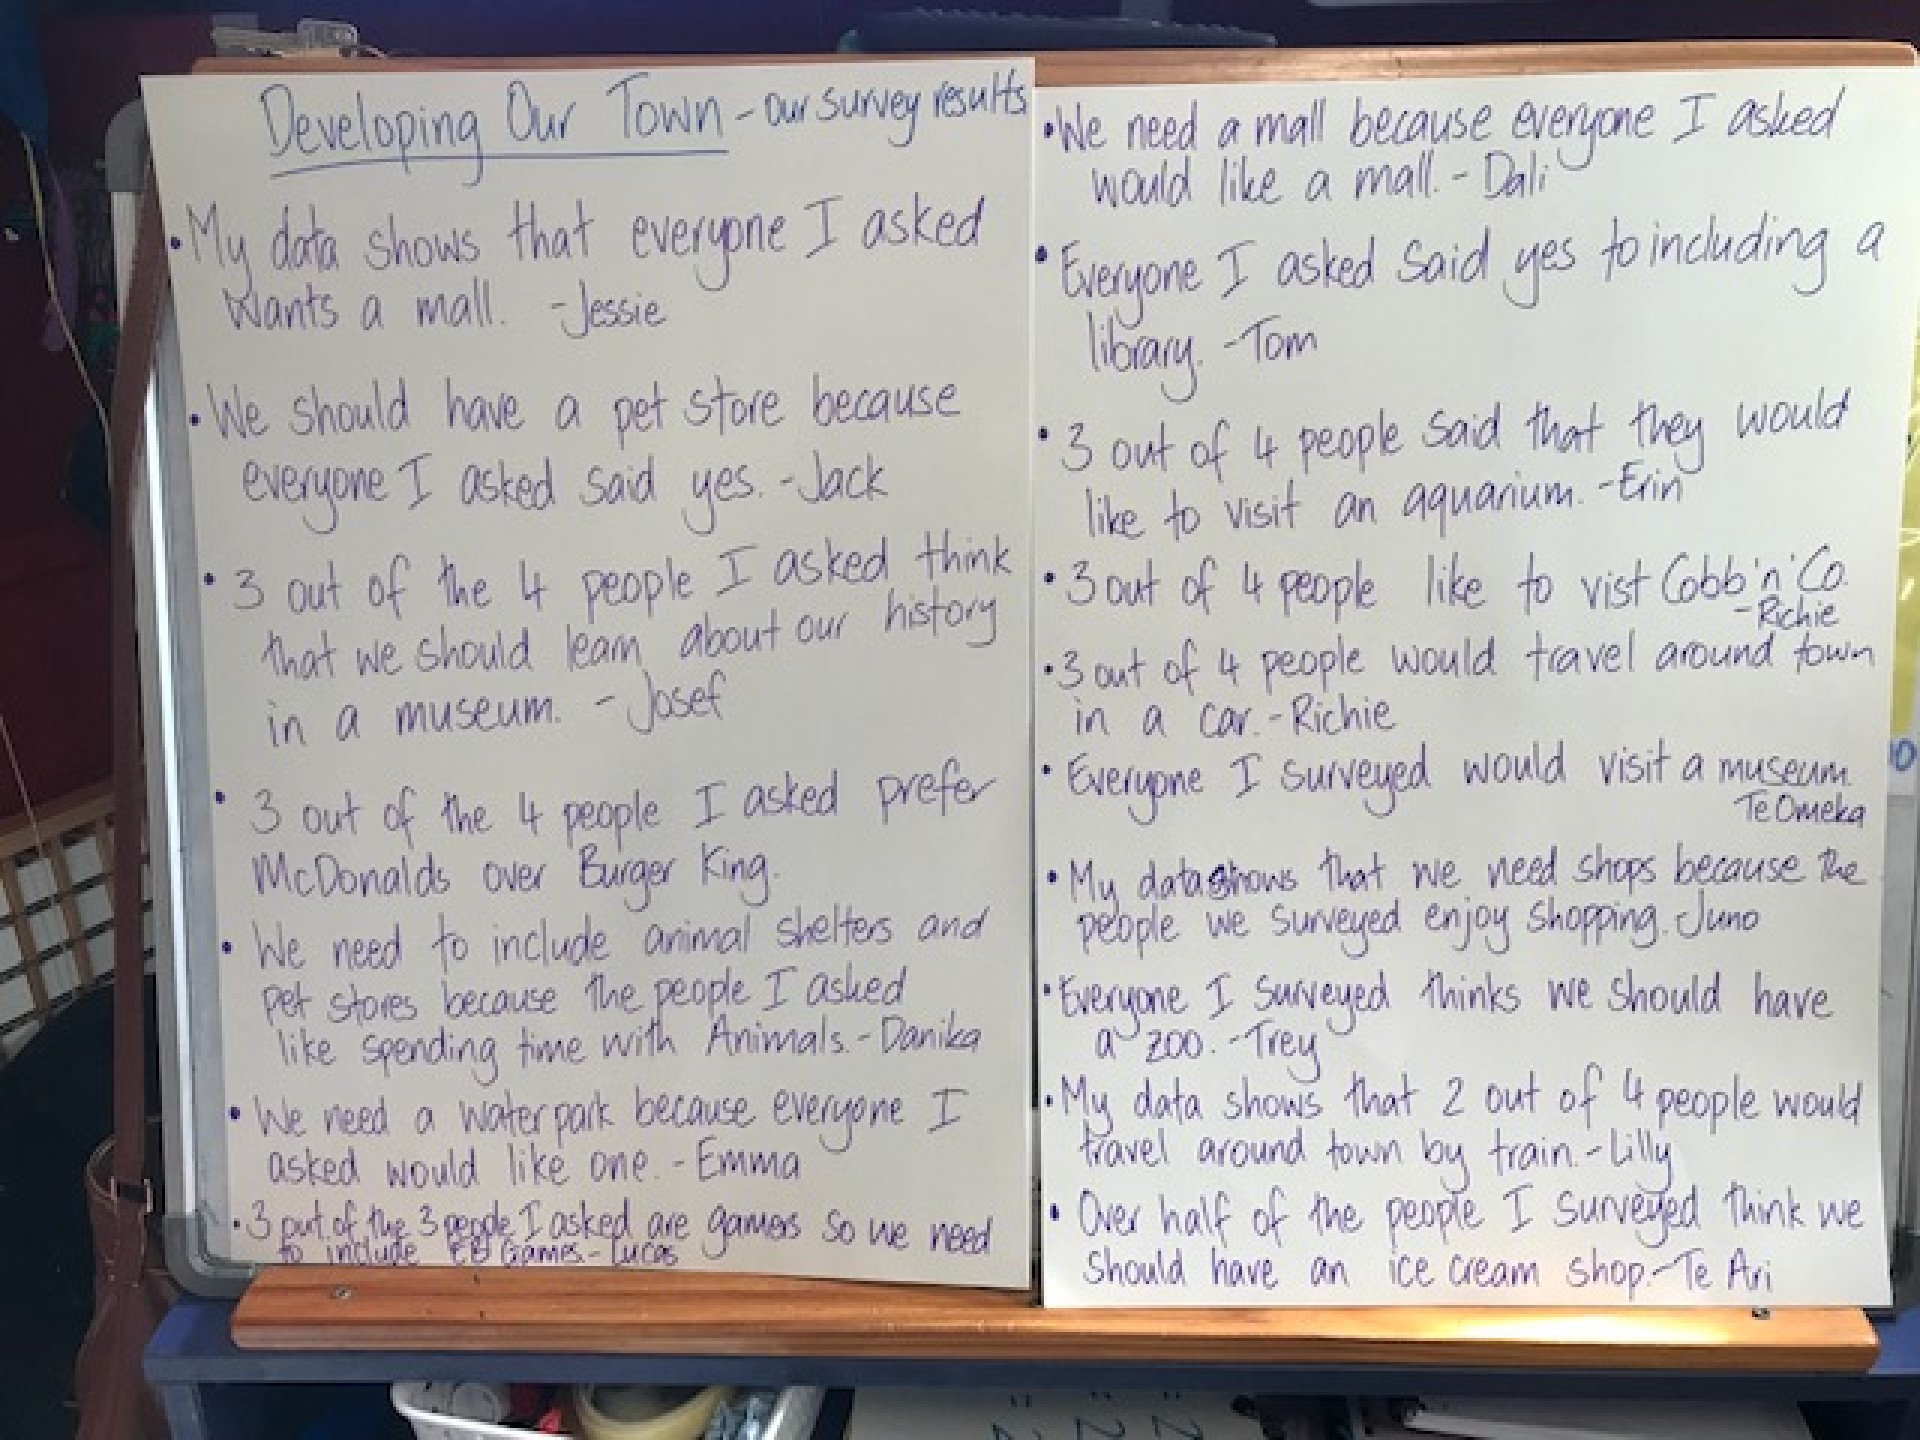 Developing Our Town - our survey results
• My data shows that everyone I asked
wants a mall. - Jessie
• We should have a pet store because
everyone I asked said yes. - Jack
• 3 out of the 4 people I asked think
that we should learn about our history
in a museum. - Josef
• 3 out of the 4 people I asked prefer
McDonalds over Burger King.
• We need to include animal shelters and
pet stores because the people I asked
like spending time with Animals. - Danika
• We need a waterpark because everyone I
asked would like one. - Emma
• 3 out of the 3 people I asked are gamers so we need
to include EB Games. - Lucas
• We need a mall because everyone I asked
would like a mall. - Dali
• Everyone I asked said yes to including a
library. - Tom
• 3 out of 4 people said that they would
like to visit an aquarium. - Erin
• 3 out of 4 people like to vist Cobb 'n' Co.
- Richie
• 3 out of 4 people would travel around town
in a car. - Richie
• Everyone I surveyed would visit a museum.
Te Omeka
• My data shows that we need shops because the
people we surveyed enjoy shopping. Juno
• Everyone I surveyed thinks we should have
a zoo. - Trey
• My data shows that 2 out of 4 people would
travel around town by train. - Lilly
• Over half of the people I surveyed think we
should have an ice cream shop. - Te Ari